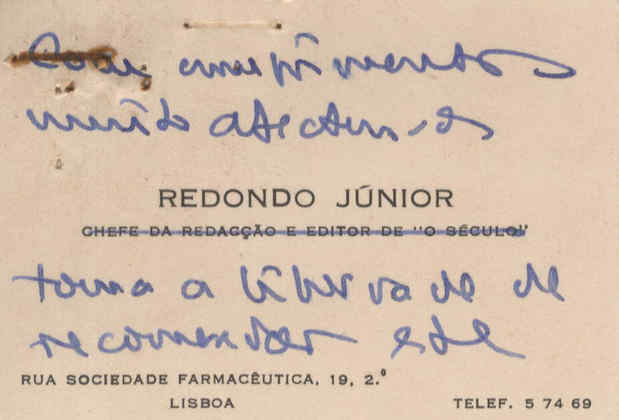 Com cumprimentos
muito afectuosos
REDONDO JÚNIOR
CHEFE DA REDACÇÃO E EDITOR DE "O SÉCULO"
toma a liberdade de
recomendar este
RUA SOCIEDADE FARMACÊUTICA, 19, 2.º
LISBOA
TELEF. 5 74 69